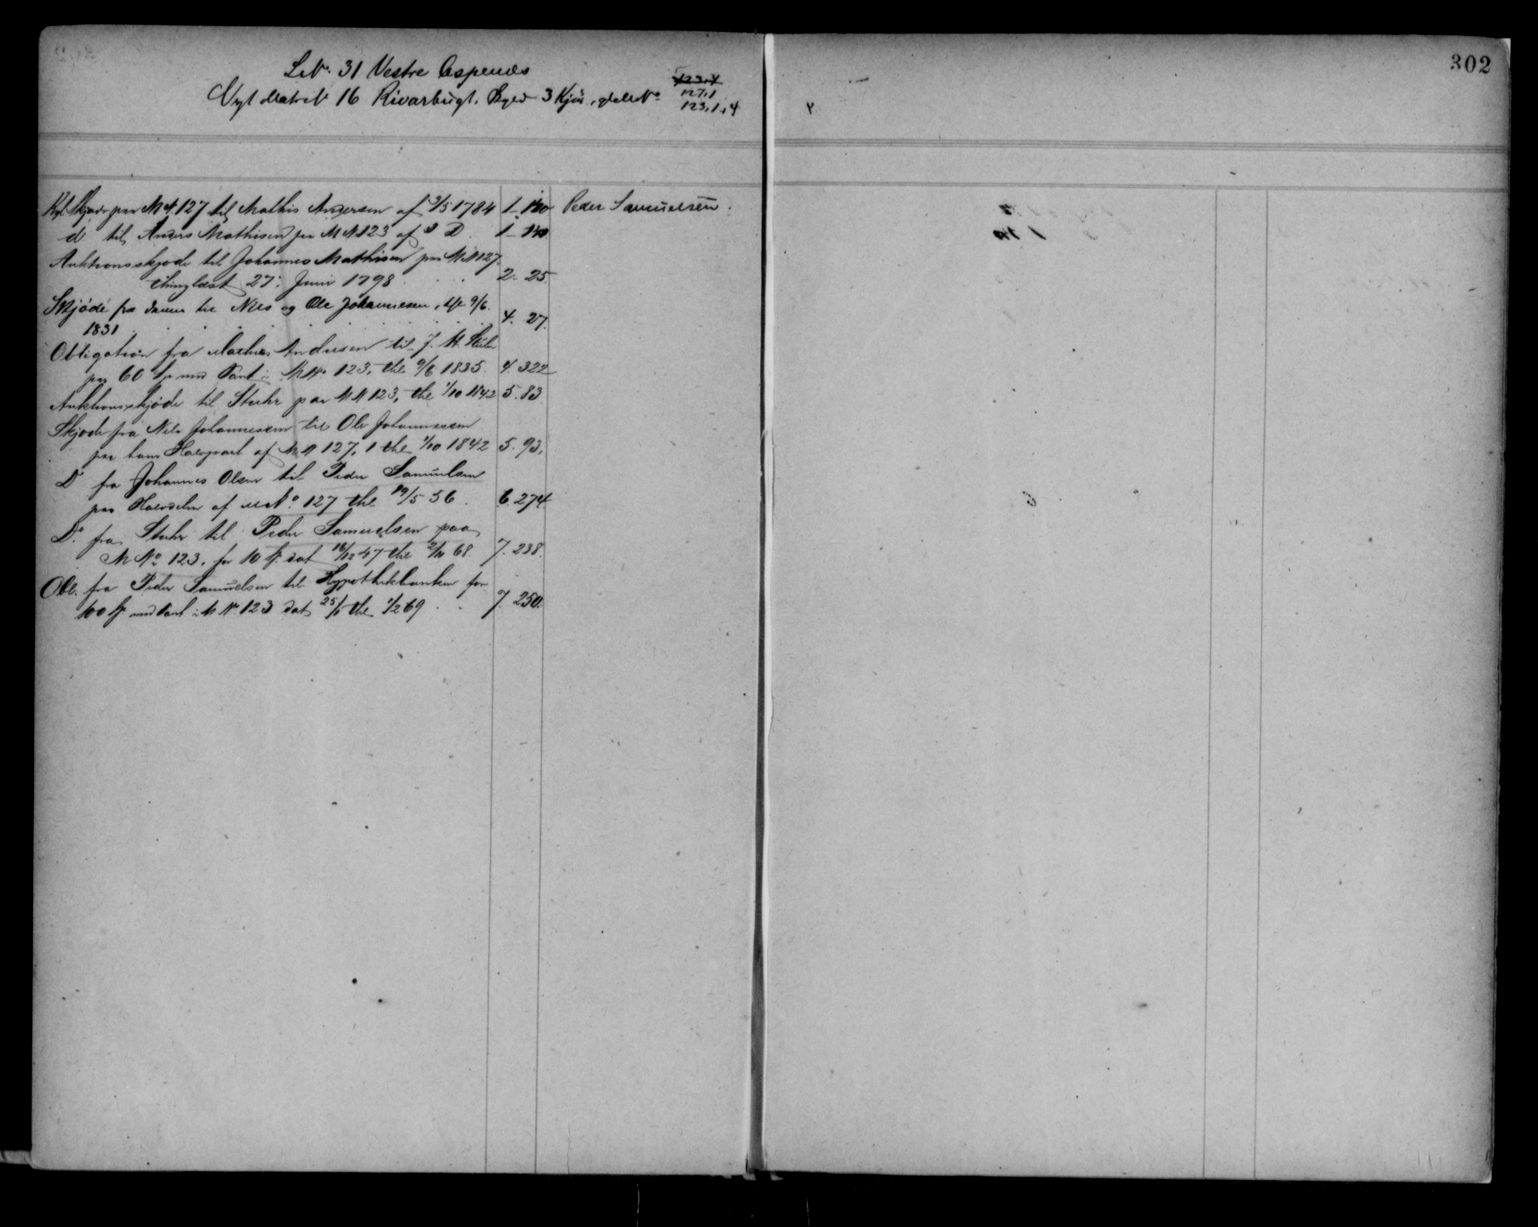 302
LNº. 31 Vestre Aspenæs
Nyt Matr Nº 16 Rivarbugt. Bygd 3 Kjør. gl. MNº 123,4
127,1
123,1,4
Kgl. Skjøde paa M N 127 til Mathis Andersen af 3/5 1784 1 - 140 Peder Samuelsen.
do til Anders Mathisen paa M N 123 af s. D. 1 - 140
Auktionsskjøde til Johannes Mathisen paa M N 127
thinglæst 27. Juni 1798 2. 25
Skjøde fra samme til Nils og Ole Johannesen, thl 9/6
1831 4. 27.
Obligation fra Mathis Andersen til J. M. Stuhr
paa 60 Sp med Pant i M Nº 123, thl 9/6 1835. 4 322
Auktionsskjøde til Stuhr paa M N 123, thl 1/10 1842 5. 83
Skjøde fra Nils Johannesen til Ole Johannesen
paa hans Halvpart af M N 127, 1 thl 1/10 1842 5. 93.
Do fra Johannes Olsen til Peder Samuelsen
paa Halvdelen af M Nº 127 thl 19/5 56. 6. 274
Do. fra Stuhr til Peder Samuelsen paa
M Nº 123, for 10 Sp. dat 18/12 47 thl 2/11 68 7. 238.
Obl. fra Peder Samuelsen til Hypothekbanken for
100 Sp med Pant i M Nº 123 dat 25/1 thl 1/2 69 7. 250.